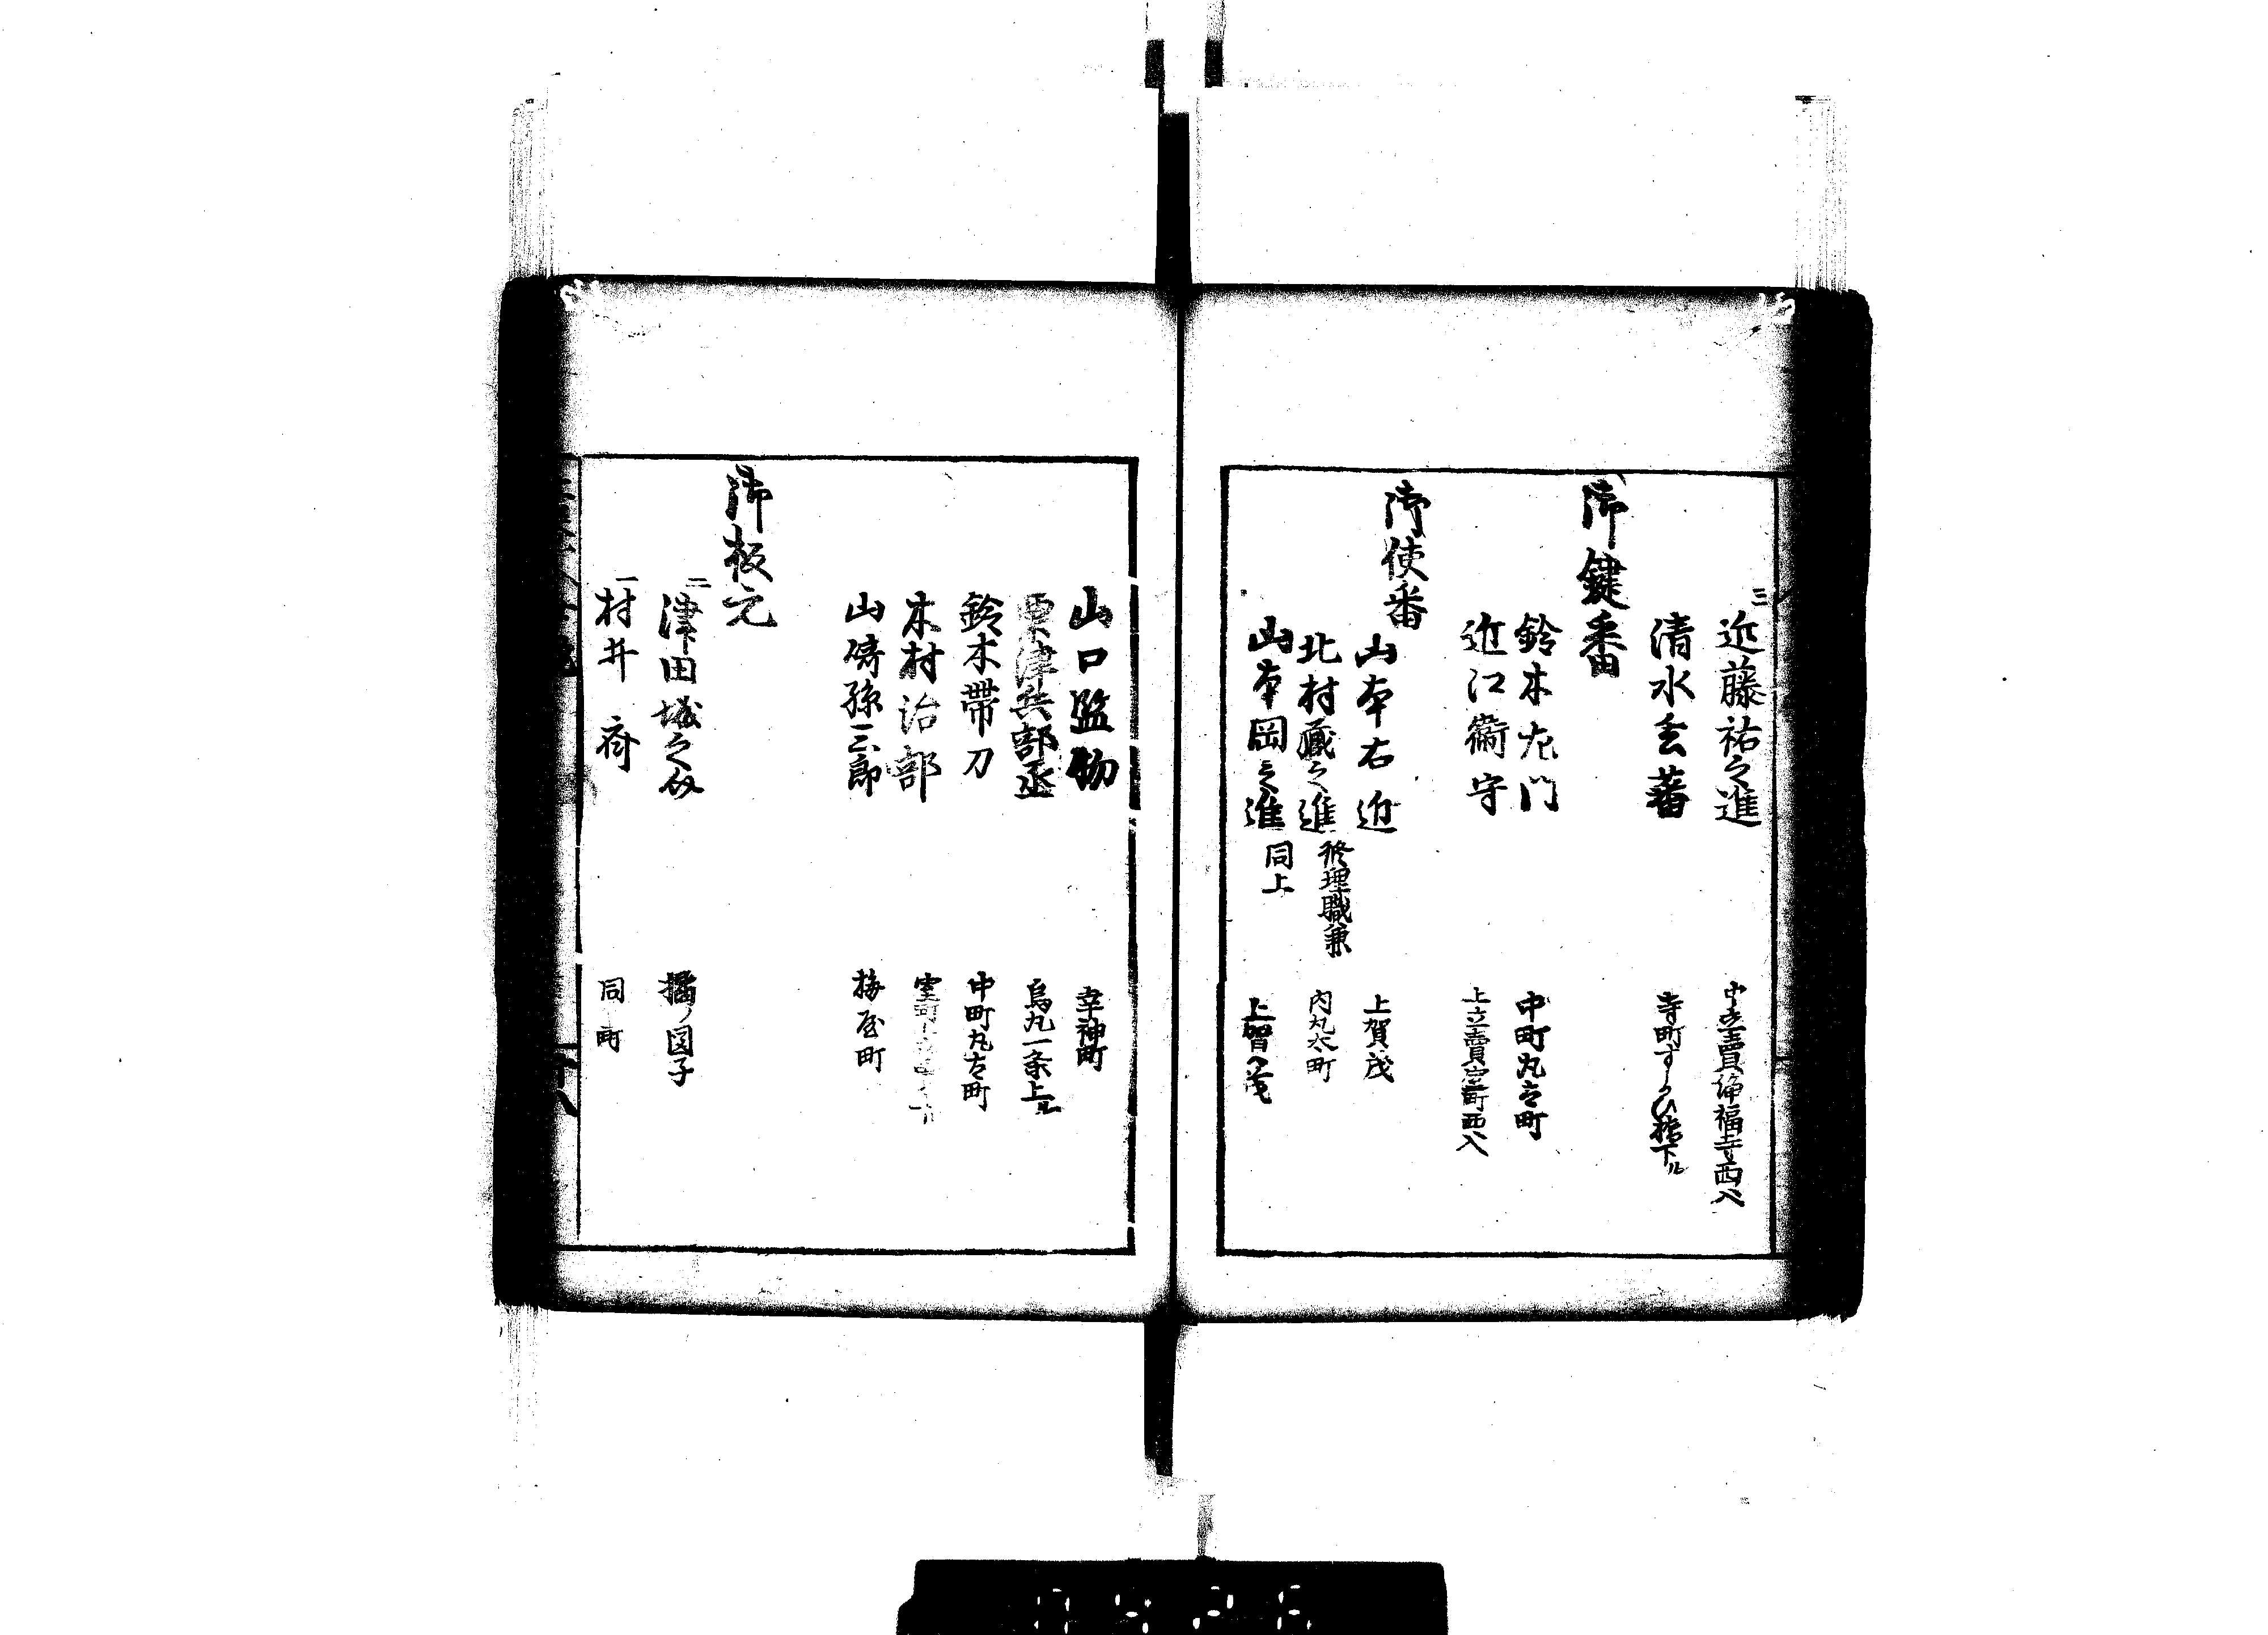 三
近藤祐之進 中立賣浄福寺西入
清水玄蕃 寺町すじかひ橋下ル
御鍵番
鈴木左門 中町丸太町
近江衛守 上立賣室町西入
御使番
山本右近 上賀茂
北村蔵之進 修理職兼 内丸太町
山本岡之進 同上 上賀茂
山口監物 幸神町
粟津兵部丞 烏丸一条上ル
鈴木帯刀 中町丸太町
木村治部 室町
山崎孫三郎 梅屋町
御板元
二
津田城之 図子
一
村井 斎 同町